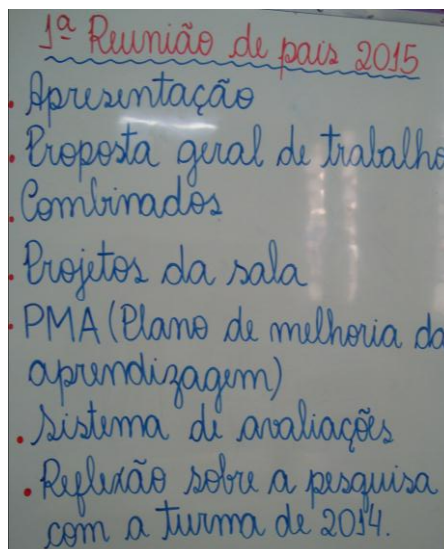 1ª Reunião de pais 2015
. Apresentação
. Proposta geral de trabalho
. Combinados
. Projetos da sala
. PMA (Plano de melhoria da
aprendizagem)
. Sistema de avaliações
. Reflexão sobre a pesquisa
com a turma de 2014.